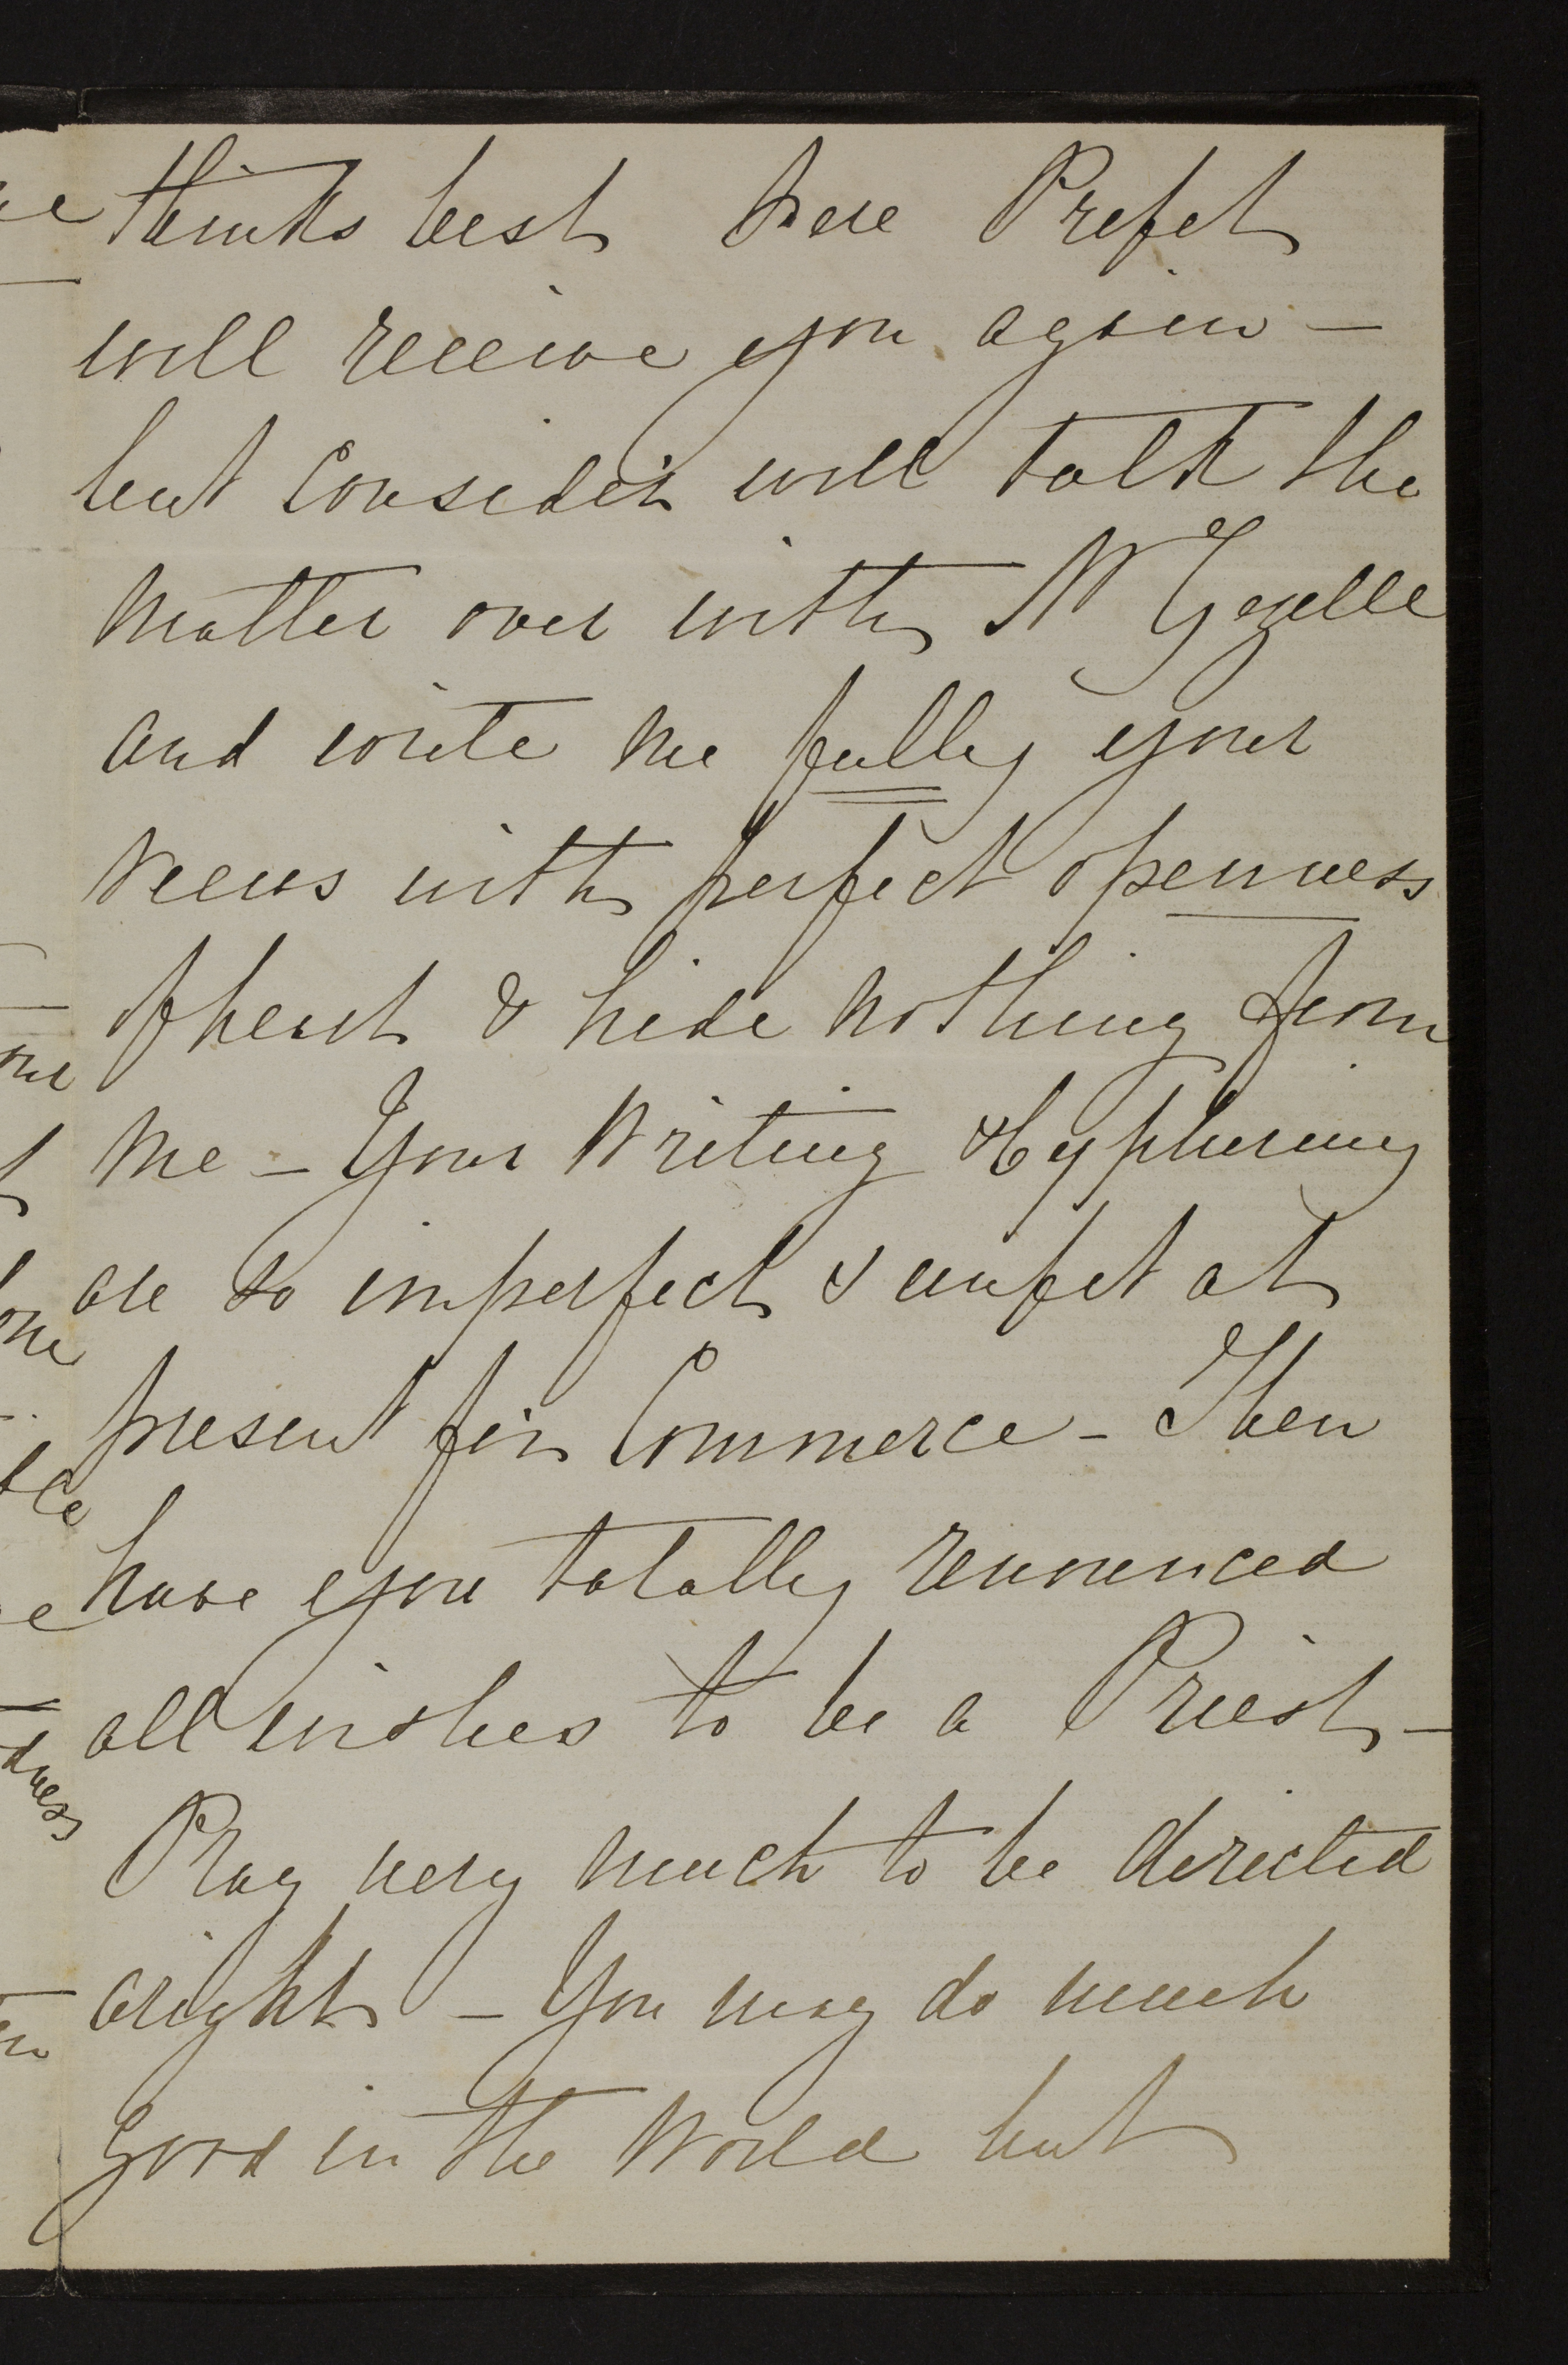 thinks best Pere Prefet
will receive you again —
but Consider well talk the
Matter over with Mr Gezelle
and write me fully your
Views with perfect openness
of heart & hide nothing from
Me — Your Writing & Cyphering
are so imperfect & unfit at
present for Commerce — Then
have you totally renounced
all wishes to be a Priest —
Pray very much to be directed
aright — You may do much
good in the World but